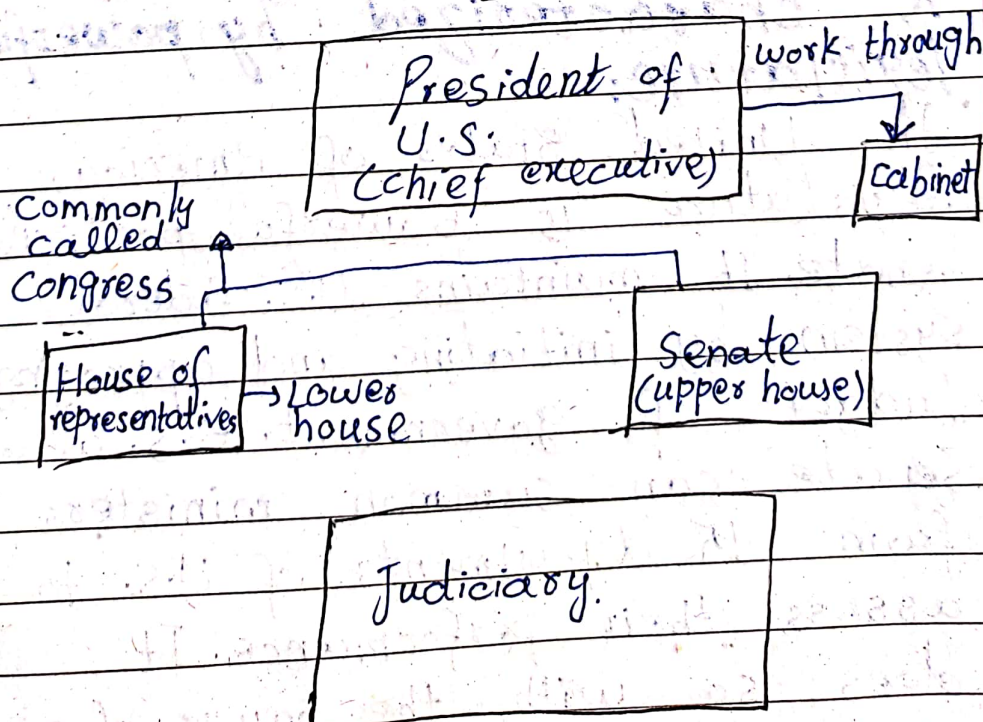 President of
U.S.
(chief executive)
work through
cabinet
Commonly
called
Congress
House of
representatives
Lower
house
Senate
(upper house)
Judiciary.